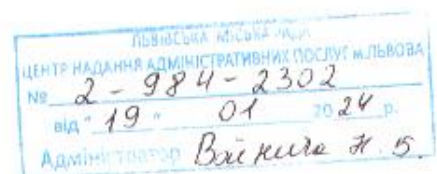 ЛЬВІВСЬКА МІСЬКА РАДА
ЦЕНТР НАДАННЯ АДМІНІСТРАТИВНИХ ПОСЛУГ м.ЛЬВОВА
№ 2-984-2302
від "19" 01 2024 р.
Адміністратор Н. Б.